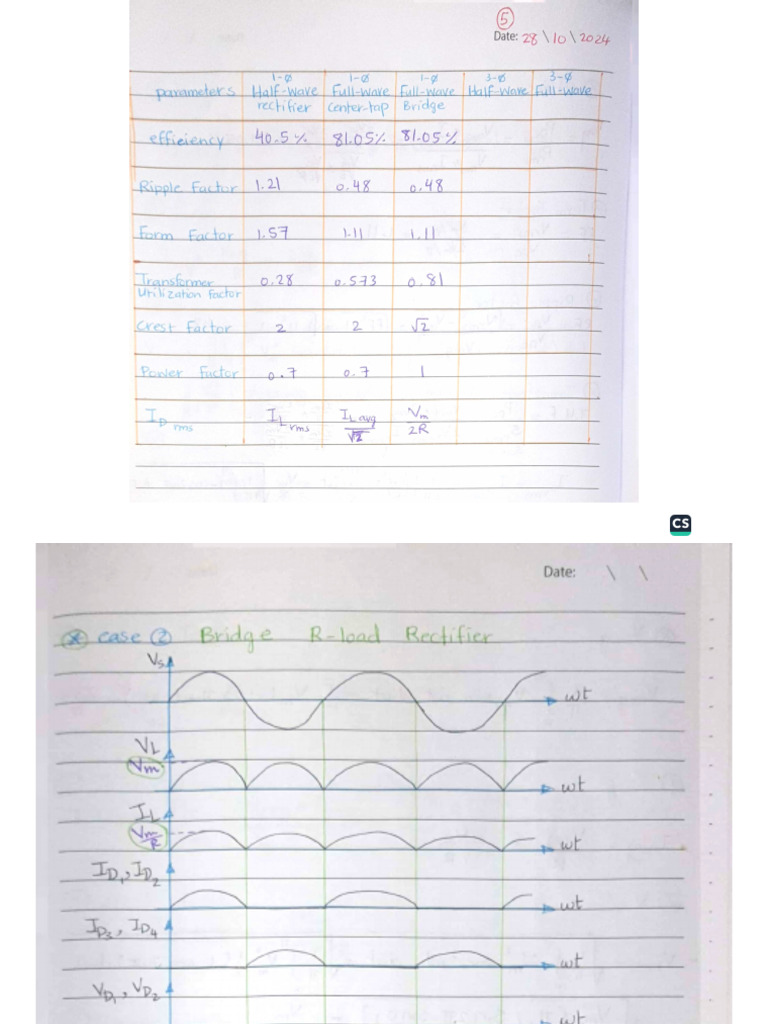 5
Date: 28 \ 10 \ 2024
parameters
1-ø Half-wave rectifier
1-ø Full-wave center-tap
1-ø Full-wave Bridge
3-ø Half-wave
3-ø Full-wave
efficiency 40.5% 81.05% 81.05%
Ripple Factor 1.21 0.48 0.48
Form Factor 1.57 1.11 1.11
Transformer Utilization factor 0.28 0.573 0.81
Crest Factor 2 2 √2
Power Factor 0.7 0.7 1
I_D rms I_L rms I_L avg/√2 Vm/2R
CS
Date: \ \
* case 2 Bridge R-load Rectifier
Vs
wt
VL
Vm
wt
IL
Vm/R
wt
ID1, ID2
wt
ID3, ID4
wt
VD1, VD2
wt